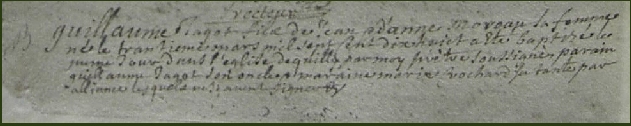 recteur
B guillaume Dagot filz de jean et danne moreau sa femme
née le trantieme mars mil sept sent dix huiet a esté baptisé le
jour dans l'eglise de par moy pretre soussigné parain
guillaume Dagot son oncle et maraine marie rochard sa tante par
alliance lesquels ne signer